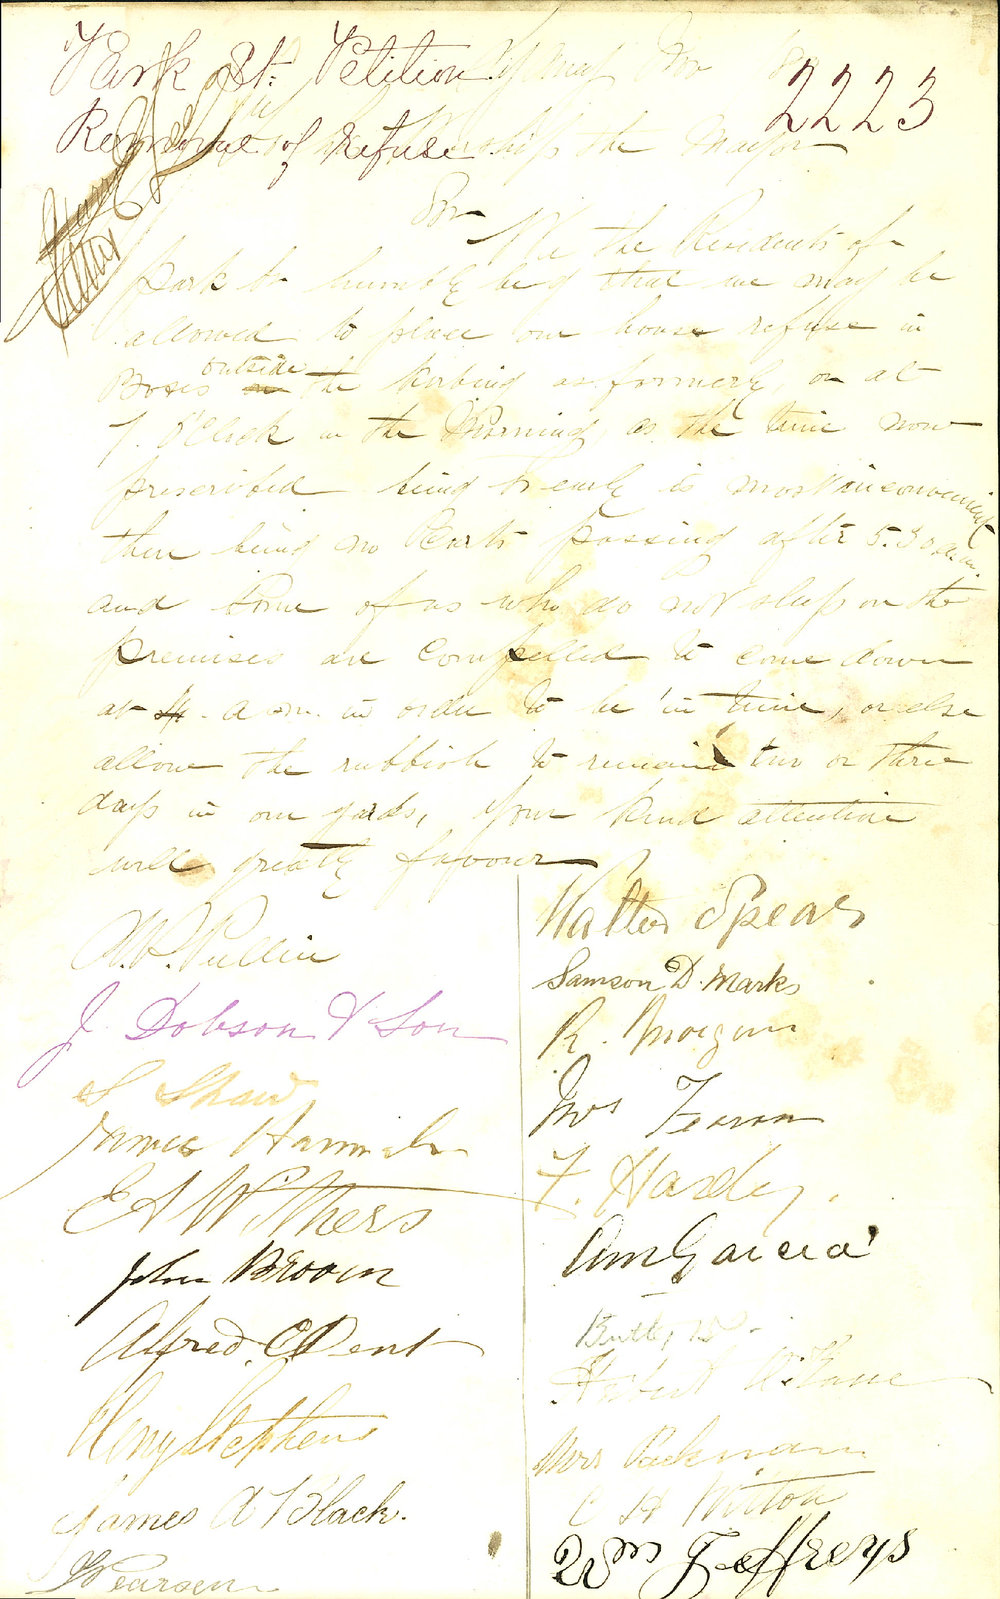 Park St. Petition
2223
Removal of Refuse
the Mayor
Sir
We the Residents of
Park St humbly beg that we may be
allowed to place our house refuse in
outside
Boxes the Kerbing as formerly on at
7. O'Clock in the Morning, as the time now
prescribed being so early is most inconvenient
there being no Carts passing after 5.30 a.m.
and some of us who do not sleep on the
premises are compelled to come down
at 4. a.m. in order to be in time, or else
allow the rubbish to remain two or three
days in our yards, Your kind attention
will greatly favour
Pullin
J. Dobson & Son
S Shaw
James
E A Withers
John Brown
Alfred C Dent
Henry Stephens
James A Black.
Pearson
Walter Spears
Samson D. Marks
R. Morgan
Mrs Fearon
F. Hardy.
Garcia
Mrs Packman
C H
Wm Jeffreys